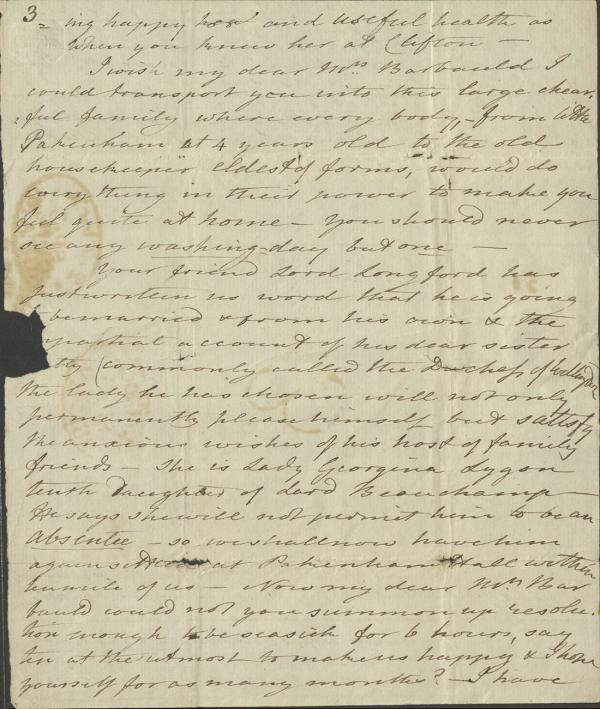 3 =ing happy &amp; and useful health as
when you knew her at Clifton —
I wish my dear Mrs Barbauld I
could transport you into this large chear,
=ful family where every body, - from little
Pakenham at 4 years old to the old
housekeeper eldest of forms, would do
every thing in their power to make you
feel quite at home — You should never
see any washing-day but one —
Your friend Lord Longford has
just written us word that he is going
to be married & from his own & the
impartial account of his dear sister
Kitty (commonly called the Duchess of Wellington
the lady he has chosen will not only
permanently please himself but satisfy
the anxious wishes of his host of family
friends — She is Lady Georgina Lygon
tenth Daughter of Lord Beauchamp —
He says she will not permit him to be an
Absentee — so we shall now have him
again settled at Pakenham Hall within
twenty miles of us — Now my dear Mrs Bar
bauld could not you summon up resolu.
tion enough to be seasick for 6 hours, say
ten at the utmost to make us happy & I hope
yourself for as many months? — I have